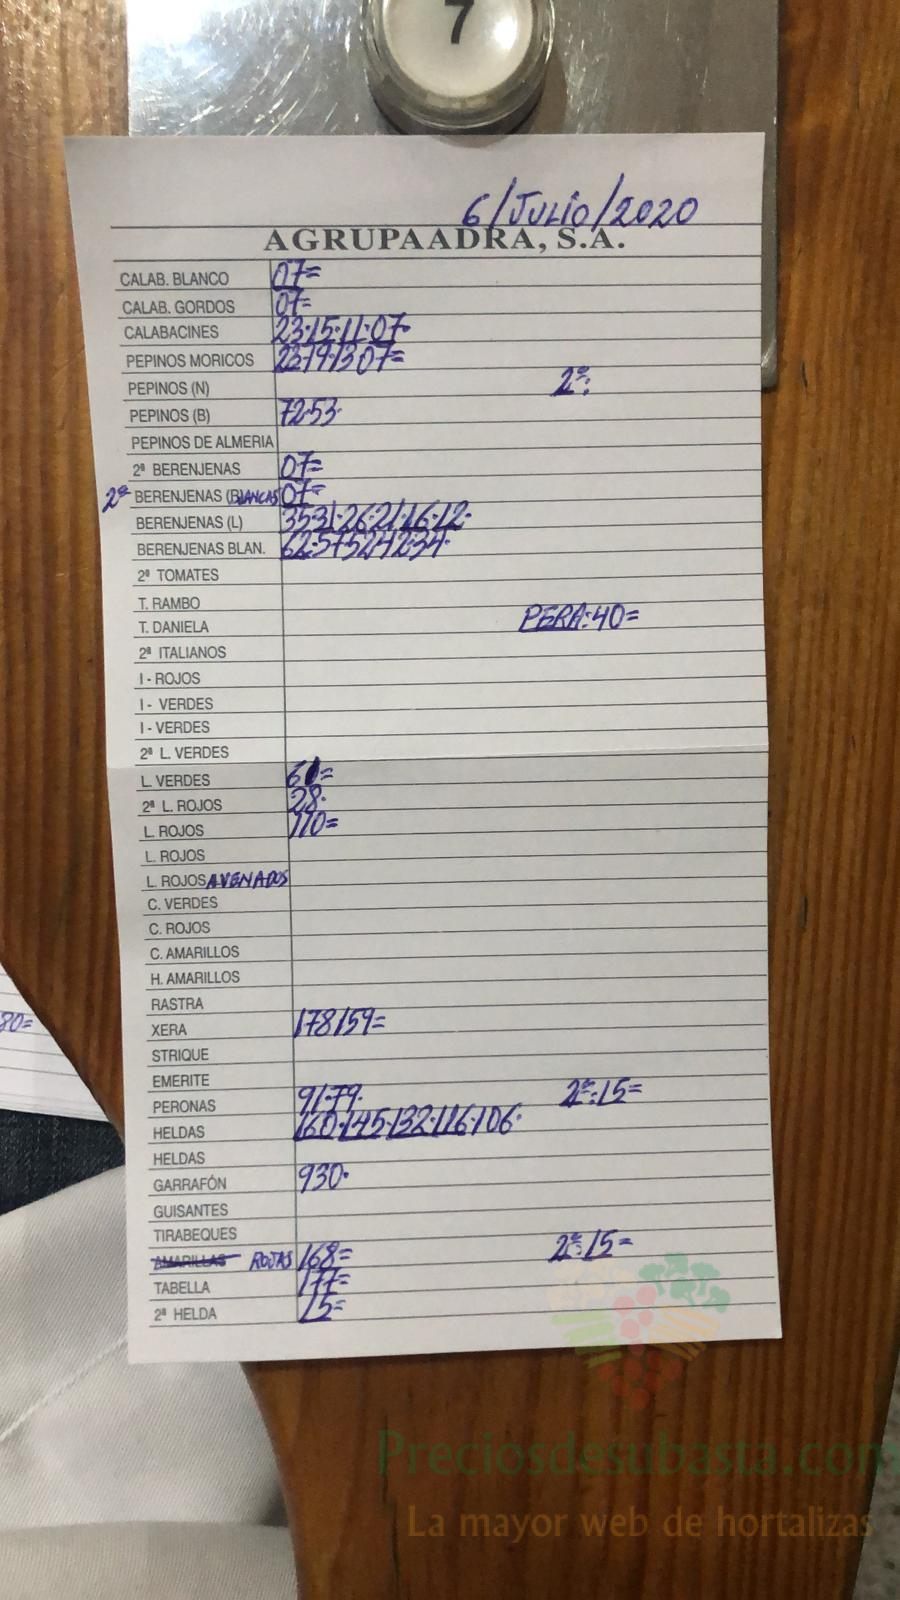 7
6/JULIO/2020
AGRUPAADRA, S.A.
CALAB. BLANCO 07=
CALAB. GORDOS 07=
CALABACINES 23·15·11·07·
PEPINOS MORICOS 23·19·13 07=
PEPINOS (N) 2ª:
PEPINOS (B) 72·53·
PEPINOS DE ALMERIA
2ª BERENJENAS 07=
2ª BERENJENAS (BLANCAS 07=
BERENJENAS (L) 35·31·26·21·16·12·
BERENJENAS BLAN. 62·57·52·42·34·
2ª TOMATES
T. RAMBO
T. DANIELA PERA:40=
2ª ITALIANOS
I - ROJOS
I - VERDES
I - VERDES
2ª L. VERDES
L. VERDES
2ª L. ROJOS 28·
L. ROJOS 110=
L. ROJOS
L. ROJOS AVENADOS
C. VERDES
C. ROJOS
C. AMARILLOS
H. AMARILLOS
RASTRA
80=
XERA 178 159=
STRIQUE
EMERITE
PERONAS 91·79· 2ª:15=
HELDAS 160·145·132·116·106·
HELDAS
GARRAFÓN 930·
GUISANTES
TIRABEQUES
AMARILLAS ROJAS 168= 2ª:15=
TABELLA 177=
2ª HELDA 15=
Preciosdesubasta.com
La mayor web de hortalizas